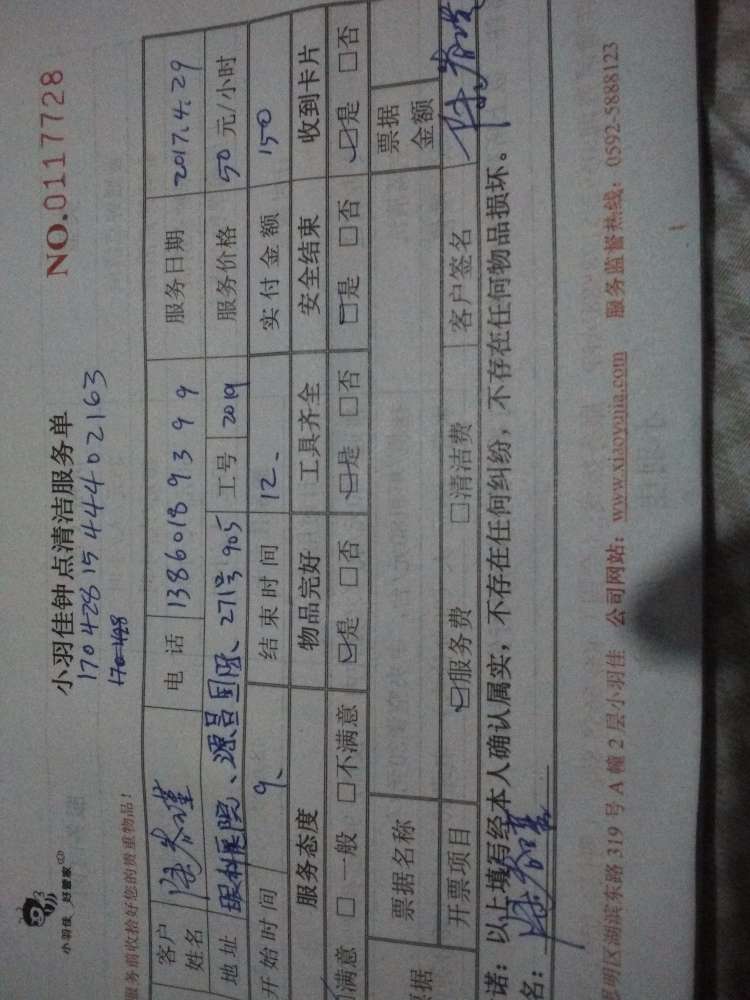 小羽佳 好管家
小羽佳钟点清洁服务单
NO.0117728
17042815444402163
服务前收拾好您的贵重物品!
客户姓名 电话 13860189399 服务日期 2017.4.29
地址 眼科医院、源昌国际、271号905 工号 2019 服务价格 50 元/小时
开始时间 9、 结束时间 12、 实付金额 150
服务态度 物品完好 工具齐全 安全结束 收到卡片
满意 □ 一般 □不满意 ☑是 □否 ☑是 □否 □是 □否 ☑是 □否
票据名称 票据金额
开票项目 ☑服务费 □清洁费 客户签名
诺:以上填写经本人确认属实,不存在任何纠纷,不存在任何物品损坏。
名:
明区湖滨东路 319 号 A 幢 2 层小羽佳 公司网站:www.xiaoyujia.com 服务监督热线:0592-5888123